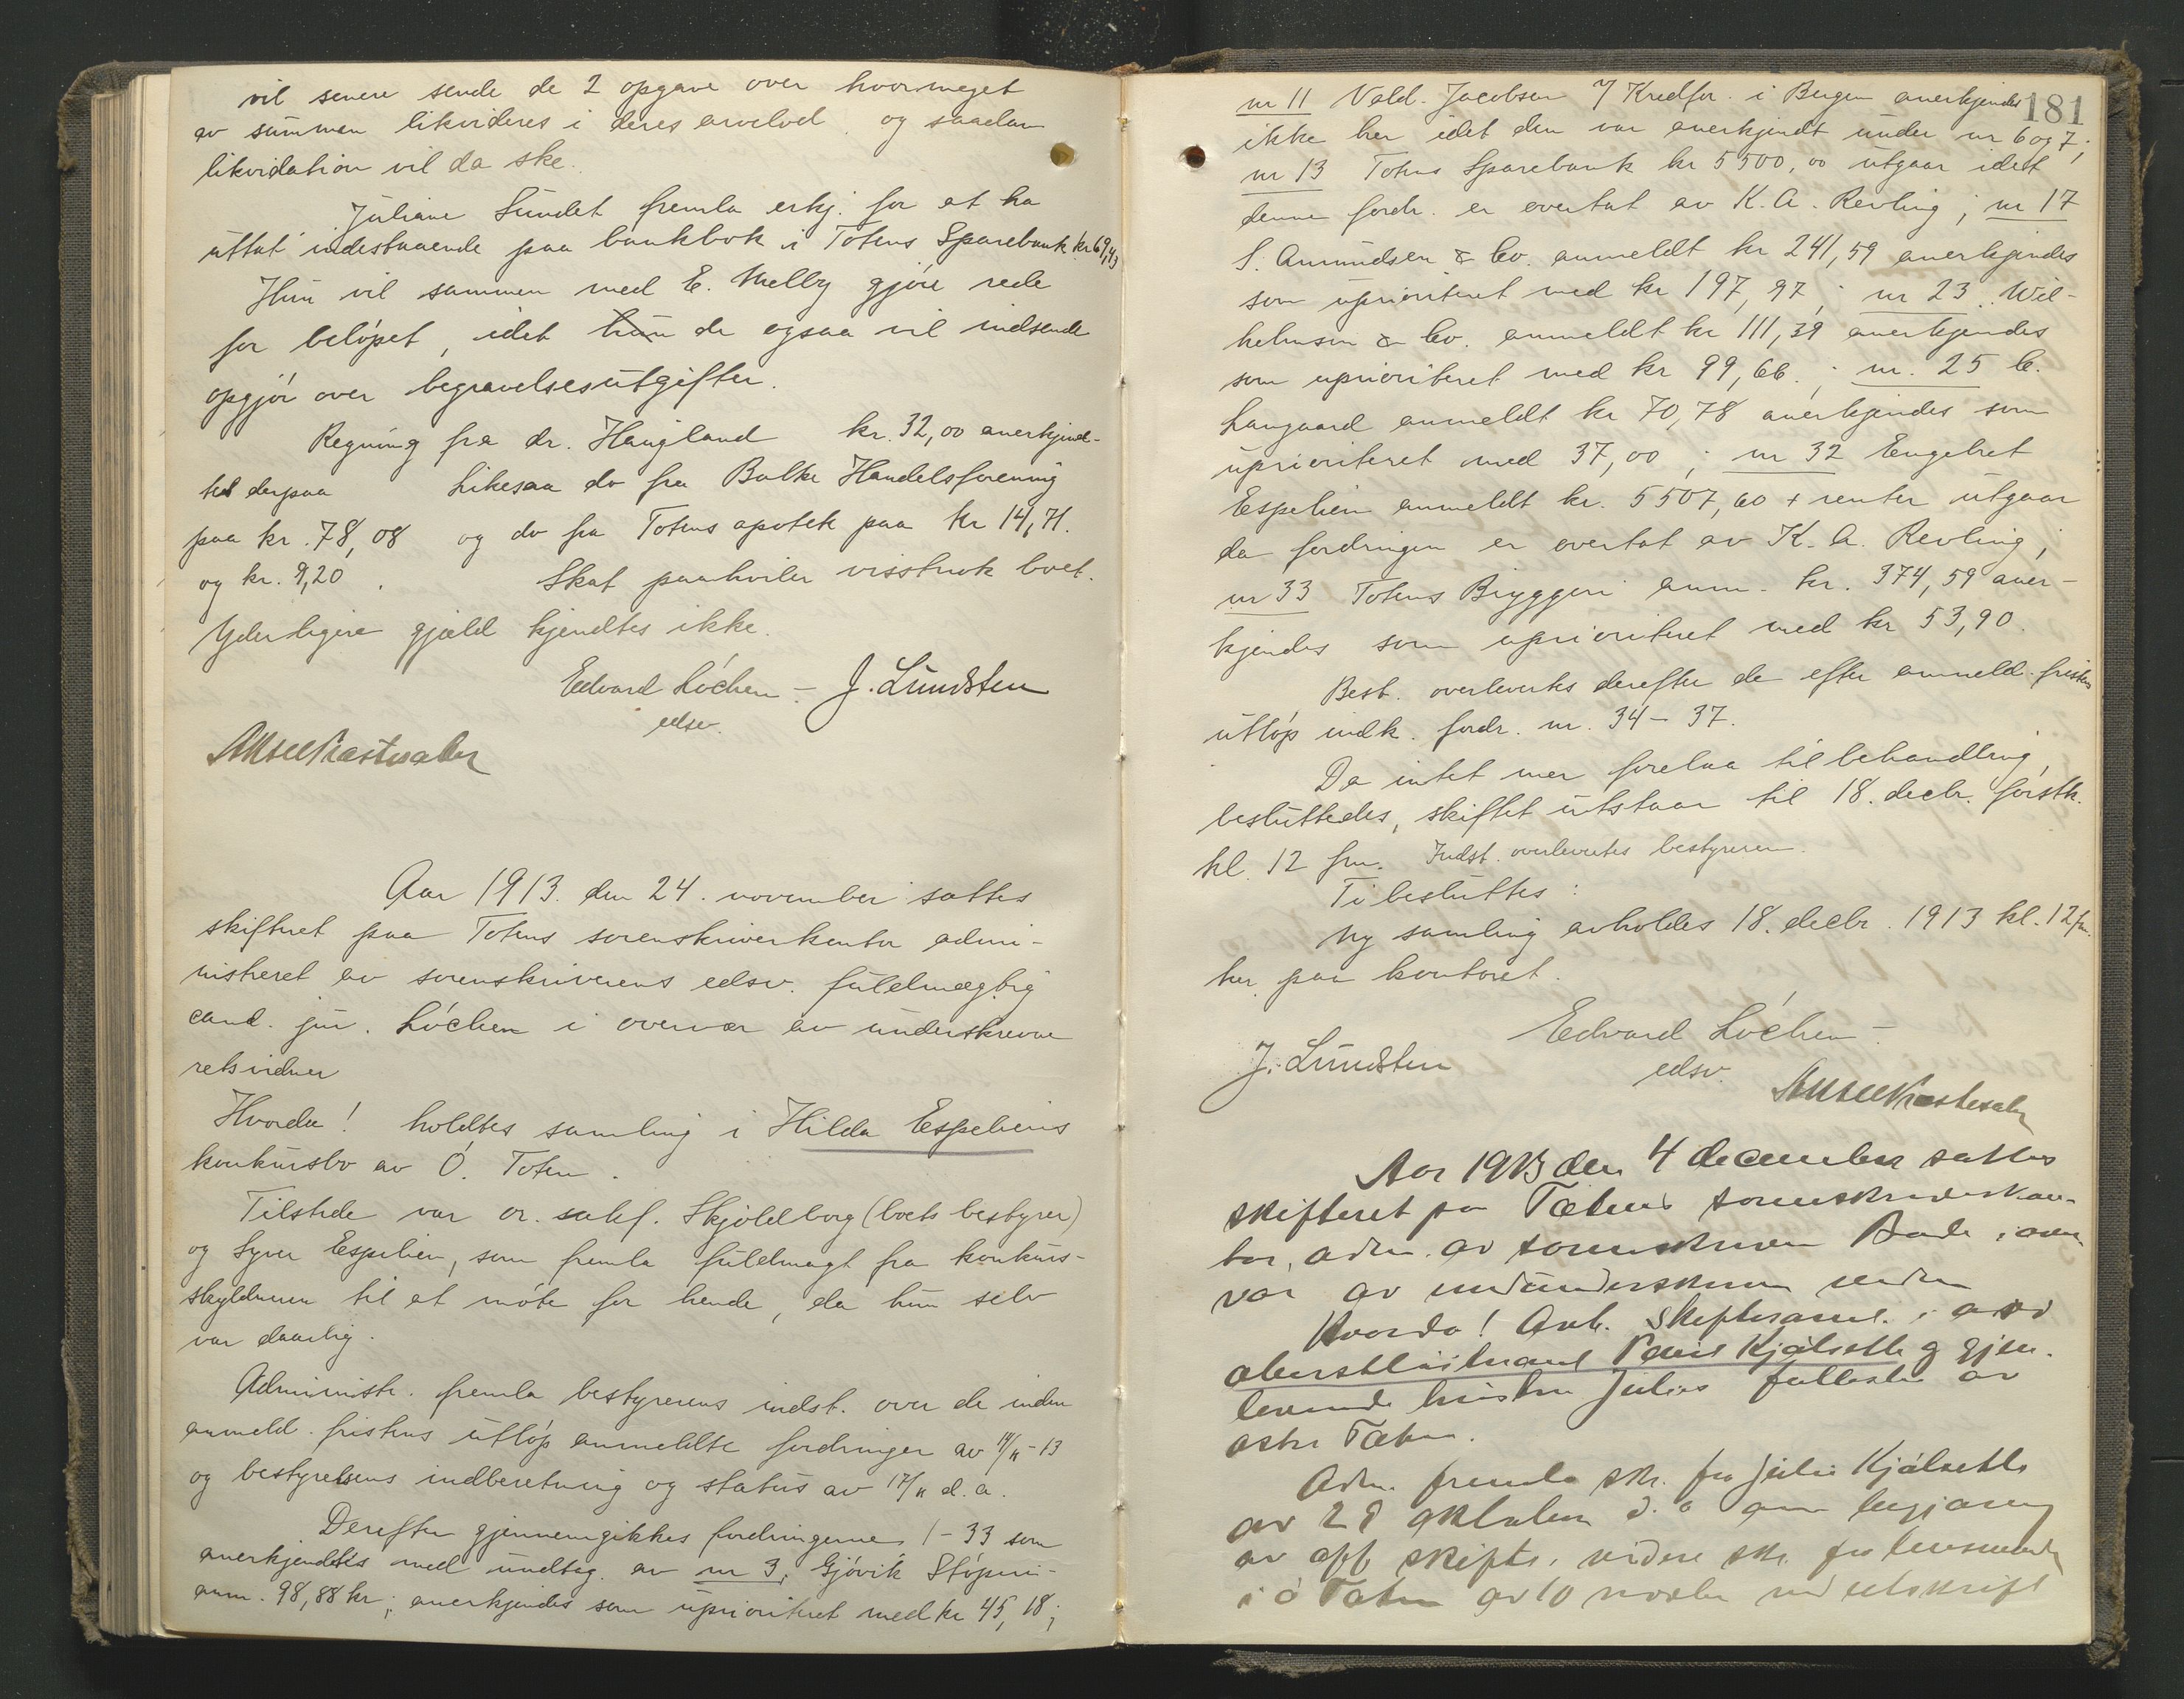 vil senere sende de 2 opgave over hvormeget
av summen likvideres i deres arvelod og saadan
likvidation vil da ske.
Juliane Sundet fremla erkj. for at ha
uttat indestaaende paa bankbok i Totens Sparebank kr 69,43
Hun vil sammen med E. Melby gjöre rede
for belöpet, idet hun de ogsaa vil indsende
opgjör over begravelsesutgifter.
Regning fra dr. Haugland kr. 32,00 anerkjend-
tes derpaa Likesaa do fra Bolke Handelsforening
paa kr. 78,08 og do fra Totens apotek paa kr 14,71.
og kr. 9,20. Skat paahviler visstnok boet.
Yderligere gjæld kjendtes ikke.
Edvard Löchen - J. Lundsten
edsv.
Aar 1913 den 24. november sattes
skifteret paa Totens sorenskriverkontor admi-
nistreret av sorenskriverens edsv. fuldmægtig
cand. jur. Löchen i overvær av underskrevne
retsvidner
Hvorda! holdtes samling i Hilda Espeliens
konkursbo av Ö. Toten.
Tilstede var or. sakf. Skjöldborg (boets bestyrer)
og Syver Espelien, som fremla fuldmagt fra konkurs-
skyldneren til at möte for hende, da hun selv
var daarlig.
Administr. fremla bestyrerens indst. over de inden
anmeld. fristens utlöp anmeldte fordringer av 14/11-13
og bestyrelsens indberetning og status av 17/11 d.a.
Derefter gjennemgikkes fordringerne 1-33 som
anerkjendtes med undtag. av nr 3, Gjövik Stöperi-
anm. 98,88 kr; anerkjendes som uprioriteret med kr 45,18;
181
nr 11 Vald. Jacobsen v/ Kredfor. i Bergen anerkjendes
ikke her idet den var anerkjendt under nr 6 og 7;
nr 13 Totens Sparebank kr 5500,00 utgaar idet
denne fordr. er overtat av K.A. Revling; nr 17
S. Amundsen & Co. anmeldt kr 241,59 anerkjendes
som uprioriteret med kr 197,97; nr 23 Wil-
helmsen & Co. anmeldt kr 111,39 anerkjendes
som uprioriteret med kr 99,66.; nr. 25 C.
Langaard anmeldt kr 70,78 anerkjendes som
uprioriteret med 37,00; nr 32 Engebret
Espelien anmeldt kr. 5507,60 + renter utgaar
da fordringen er overtat av K.A. Revling;
nr 33 Totens Bryggeri anm. kr. 374,59 aner-
kjendes som uprioriteret med kr 53,90.
Best. overleverte derefter de efter anmeld. fristens
utlöp indk. fordr. nr. 34-37.
Da intet mer forelaa til behandling,
besluttedes, skiftet utstaar til 18. decbr. förstk.
kl. 12 fm. Indst. overlevertes bestyreren.
Ti besluttes:
Ny samling avholdes 18. decbr. 1913 kl. 12 fm.
her paa kontoret.
Edvard Löchen -
J. Lundsten edsv.
Aar 1913 den 4 december sattes
skifteret paa Totens sorenskriverkon-
tor, adm. av sorenskriver i over-
vær av
Hvorda! Avh. Skiftesaml. i avd
oberstlöitnant Kjölseth og gjen-
levende hustru Julies fællesbo av
östre Toten.
Adm. fremla skr. fra Julie Kjölseth
av 28 oktober d.a om begjæring
av off. skifte, videre skr. fra lensmanden
i ö Toten av 10 novbr med utskrift